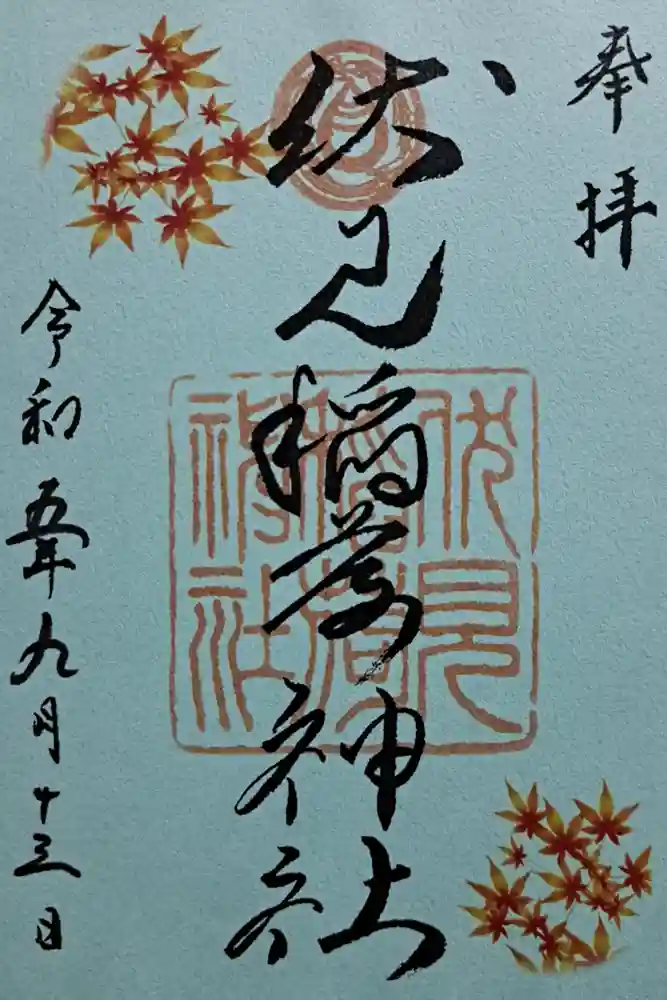 奉拝
伏見稲荷神社
伏見稲荷神社
令和五年九月十三日